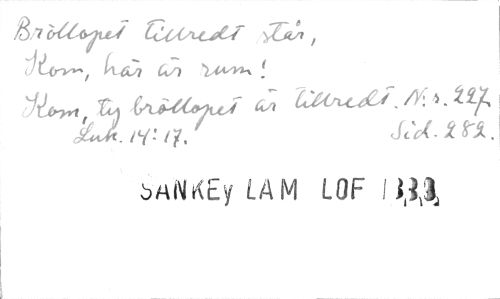 Bröllopet tillredt står,
Kom, här är rum!
Kom, ty bröllopet är tillredt. N:r. 227.
Luk. 14:17. Sid. 282.
SANKEY LAM LOF